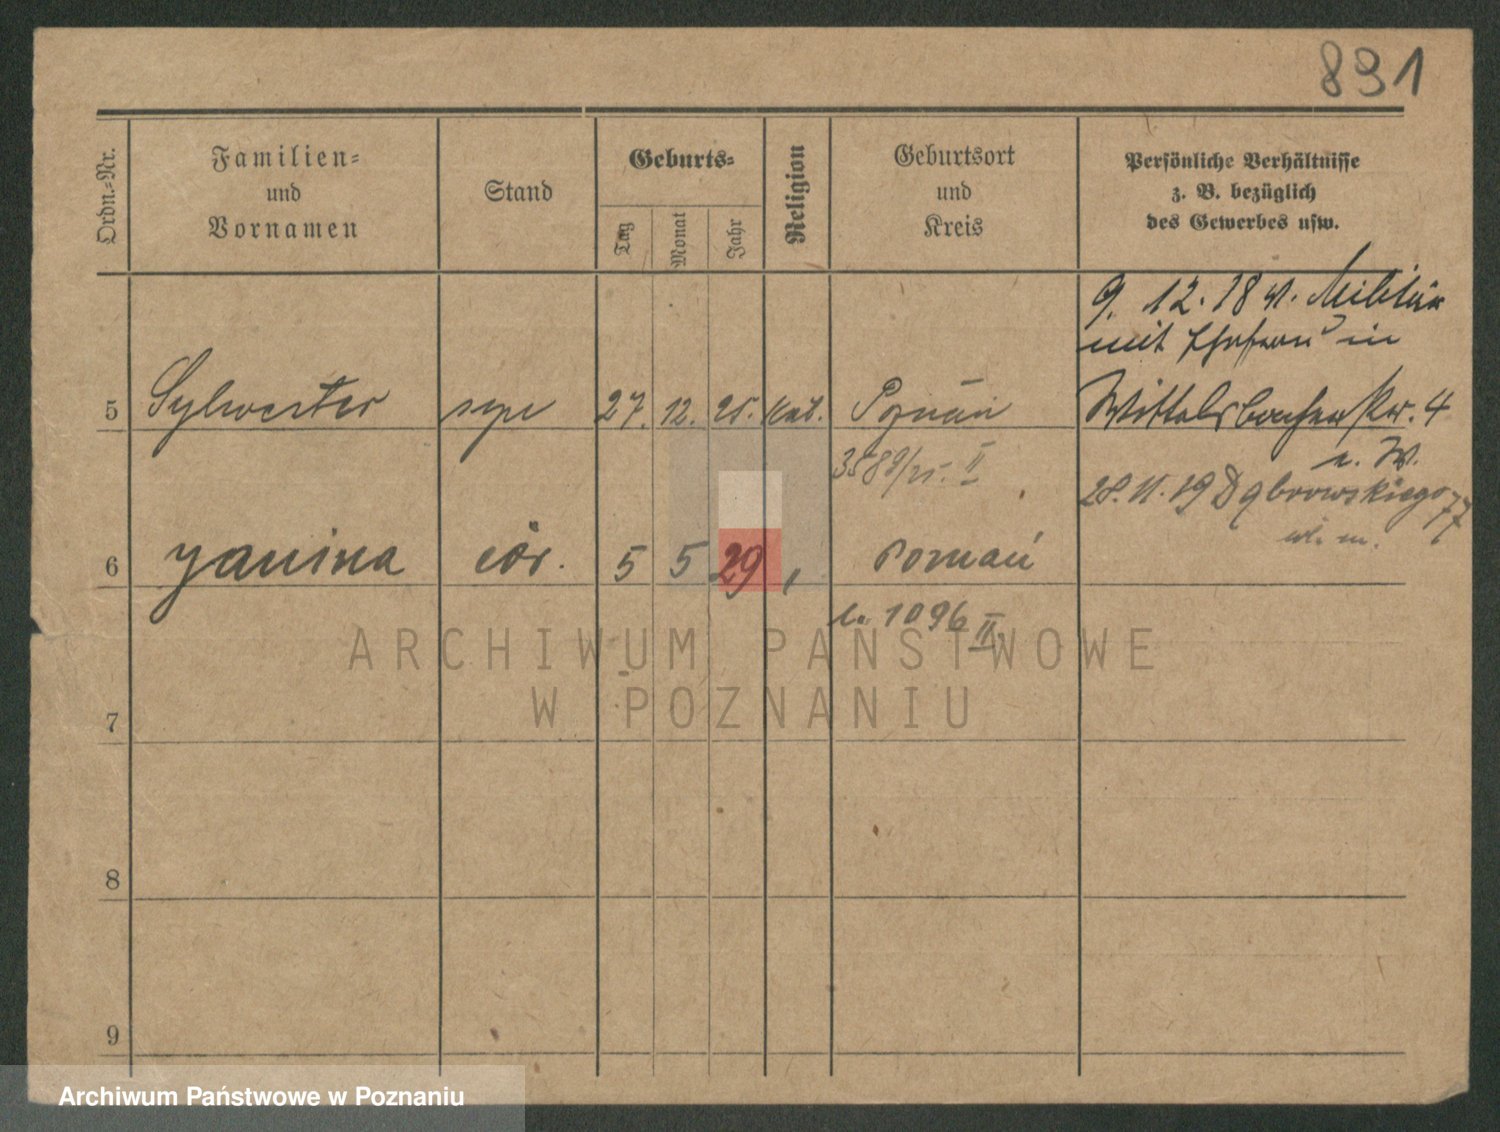 891
Ordn.-Nr.
Familien-
und
Vornamen
Stand
Geburts-
Tag
Monat
Jahr
Religion
Geburtsort
und
Kreis
Persönliche Verhältnisse
z. B. bezüglich
des Gewerbes usw.
9. 12. 18 v. Militär
mit Ehefrau in
5 Sylwester syn 27. 12. 25. kat. Poznań Wittelsbacher 4
3589/25. II
28. 11. 19 Dąbrowskiego 77
6 Janina cór. 5 5 29 " Poznań
1096 II.
7
8
9
ARCHIWUM PAŃSTWOWE
W POZNANIU
Archiwum Państwowe w Poznaniu